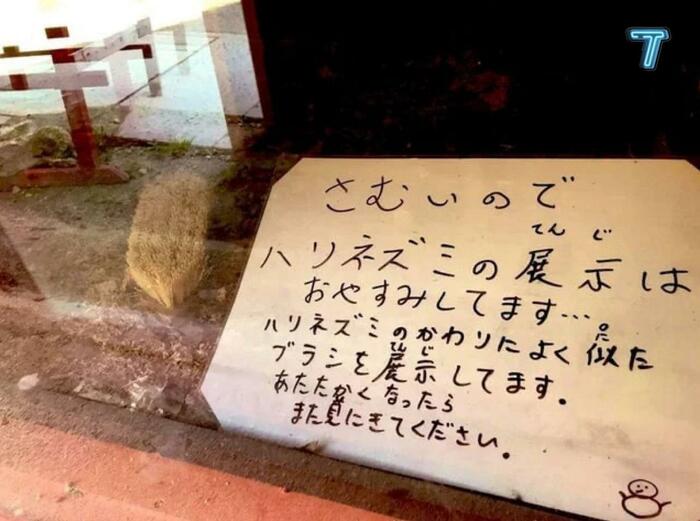 T
さむいので
てんじ
ハリネズミの展示は
おやすみしてます…
ハリネズミのかわりによく似た
に
ブラシを展示してます。
てんじ
あたたかくなったら
また見にきてください。